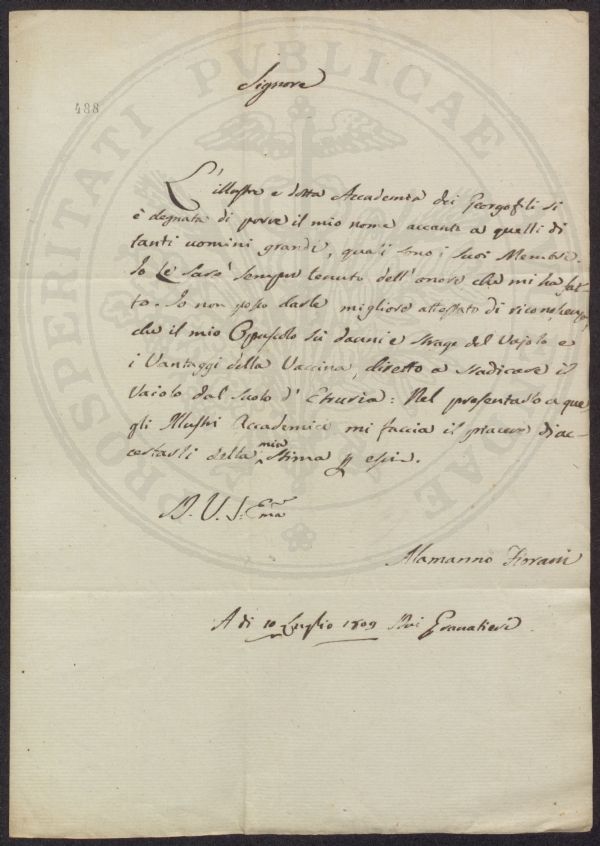 Signore
488
L'illustre e dotta Accademia dei Georgofili si
è degnata di porre il mio nome accanto a quelli di
tanti uomini grandi, quali sono i suoi Membri.
Io Le sarò sempre tenuto dell'onore che mi ha fat-
to. Io non posso darle migliore attestato di riconoscenza,
che il mio Opuscolo su i danni e strage del Vajolo e
i Vantaggi della Vaccina, diretto a sradicare il
Vaiolo dal Suolo d'Etruria: Nel presentarlo a que
gli Illustri Accademici mi faccia il piacere di ac-
certarli della mia Stima p essi.
D. V. S. Ema
Alamanno
A di 10 Luglio 1809 Dai Granatieri
PROSPERITATI PUBLICAE